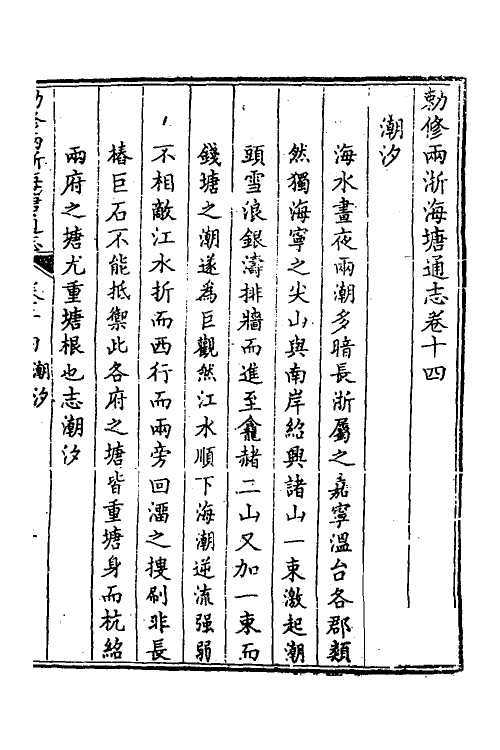 勅修兩浙海塘通志卷十四
潮汐
海水晝夜兩潮多暗長浙屬之嘉寧溫台各郡類
然獨海寧之尖山與南岸紹興諸山一束激起潮
頭雪浪銀濤排牆而進至龕赭二山又加一束而
錢塘之潮遂為巨觀然江水順下海潮逆流强弱
不相敵江水折而西行而兩旁回澑之搜刷非長
樁巨石不能抵禦此各府之塘皆重塘身而杭紹
兩府之塘尤重塘根也志潮汐
潮汐